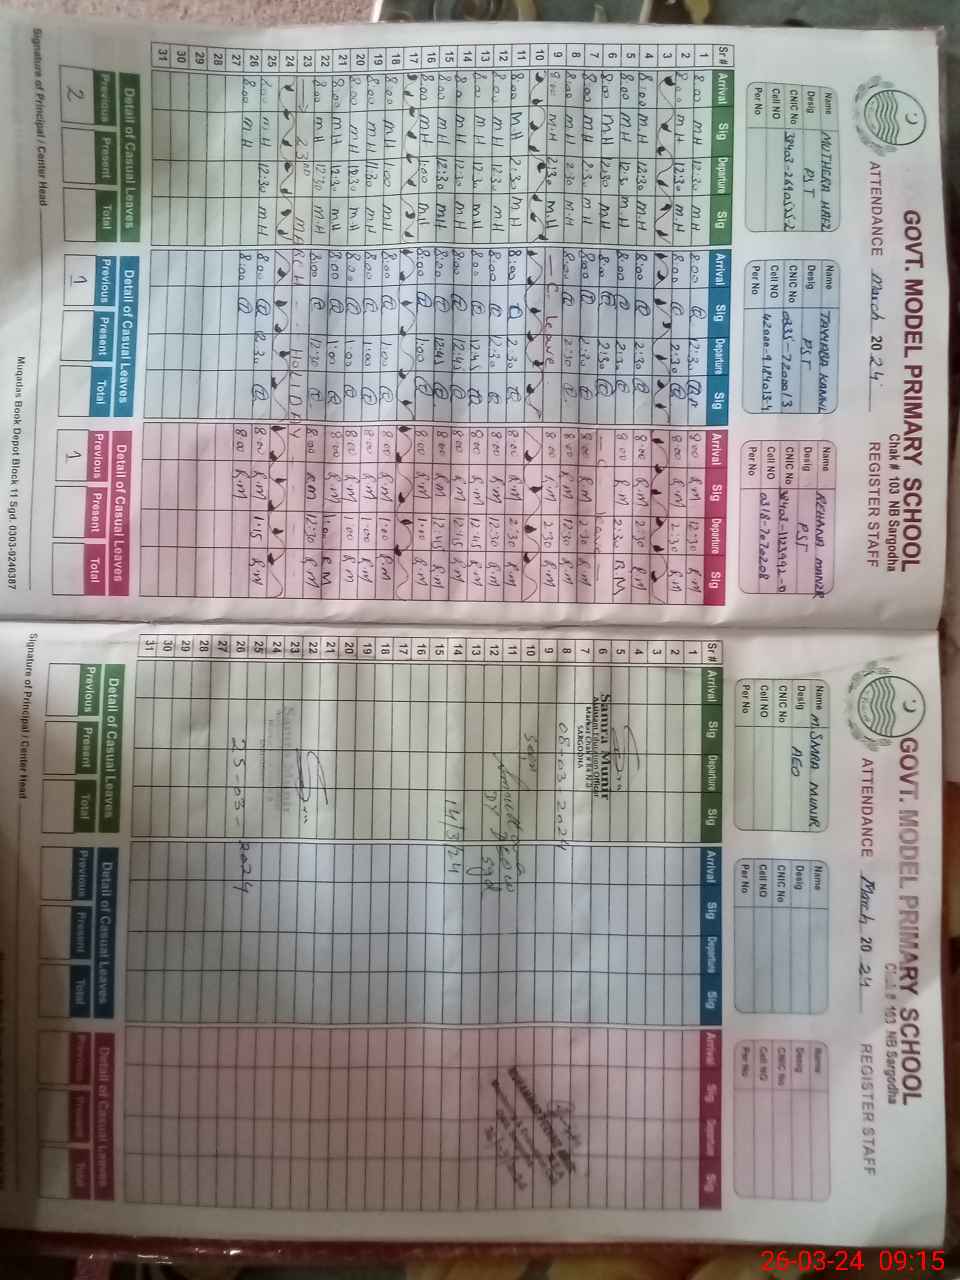 GOVT. MODEL PRIMARY SCHOOL
Chak # 103 NB Sargodha
ATTENDANCE March 2024 REGISTER STAFF
Name
Desig PST
CNIC No
Cell NO
Per No
Name
Desig PST
CNIC No
Cell NO
Per No
Name REHANA MUNIR
Desig PST
CNIC No
Cell NO
Per No
Sr # Arrival Sig Departure Sig Arrival Sig Departure Sig Arrival Sig Departure Sig
1 8:00 M.H 12:30 M.H 8:00 12:30 8:00 R.M 12:30 R.M
2 8:00 M.H 12:30 M.H 8:00 2:30 8:00 R.M 2:30 R.M
3
4 8:00 M.H 12:30 M.H 8:00 2:30 8:00 R.M 2:30 R.M
5 8:00 M.H 12:30 M.H 8:00 2:30 8:00 R.M 2:30 R.M
6 8:00 M.H 2:30 M.H 8:00 2:30 C Leave
7 8:00 M.H 2:30 M.H 8:00 2:30 8:00 R.M 2:30 R.M
8 8:00 M.H 2:30 M.H 8:00 2:30 8:00 R.M 12:30 R.M
9 8:00 M.H 2:30 M.H C. Leave 8:00 R.M 2:30 R.M
10
11 8:00 M.H 2:30 M.H 8:00 2:30 8:00 R.M 2:30 R.M
12 8:00 M.H 12:30 M.H 8:00 12:30 8:00 R.M 12:30 R.M
13 8:00 M.H 12:30 M.H 8:00 12:45 8:00 R.M 12:45 R.M
14 8:00 M.H 12:30 M.H 8:00 12:45 8:00 R.M 12:45 R.M
15 8:00 M.H 12:30 M.H 8:00 12:45 8:00 R.M 12:45 R.M
16 8:00 M.H 1:00 M.H 8:00 1:00 8:00 R.M 1:00 R.M
17
18 8:00 M.H 1:00 M.H 8:00 1:00 8:00 R.M 1:00 R.M
19 8:00 M.H 11:30 M.H 8:00 1:00 8:00 R.M 1:00 R.M
20 8:00 M.H 12:30 M.H 8:00 1:00 8:00 R.M 1:00 R.M
21 8:00 M.H 12:30 M.H 8:00 1:00 8:00 R.M 1:00 R.M
22 8:00 M.H 12:30 M.H 8:00 12:30 8:00 R.M 12:30 R.M
23 23 MARCH HOLIDAY
24
25 8:00 M.H 12:30 M.H 8:00 12:30 8:00 R.M 1:15 R.M
26 8:00 M.H 8:00 8:00 R.M
27
28
29
30
31
Detail of Casual Leaves
Previous Present Total
2
Detail of Casual Leaves
Previous Present Total
1
Detail of Casual Leaves
Previous Present Total
1
Signature of Principal / Center Head
Muqadas Book Depot Block 11 Sgd. 0303-9246387
GOVT. MODEL PRIMARY SCHOOL
Chak # 103 NB Sargodha
ATTENDANCE March 2024 REGISTER STAFF
Name M. SMRA MUNIR
Desig AEO
CNIC No
Cell NO
Per No
Name
Desig
CNIC No
Cell NO
Per No
Name
Desig
CNIC No
Cell NO
Per No
Sr # Arrival Sig Departure Sig Arrival Sig Departure Sig Arrival Sig Departure Sig
1
2
3
4
5
6
7
8
9
10
11
12
13
14
15
16
17
18
19
20
21
22
23
24
25
26
27
28
29
30
31
Samra Munir
Assistant Education Officer
SARGODHA
08-03-2024
Sgd
14/3/24
25-03-2024
Detail of Casual Leaves
Previous Present Total
Detail of Casual Leaves
Previous Present Total
Detail of Casual Leaves
Previous Present Total
Signature of Principal / Center Head
26-03-24 09:15